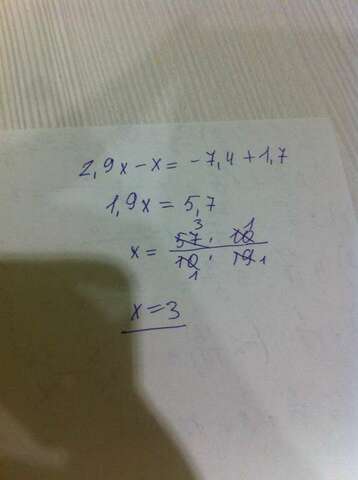 2,9x-x=-7,4+1,7
1,9x=5,7
x= 57 3 · 10 1 / 10 1 · 19 1
x=3